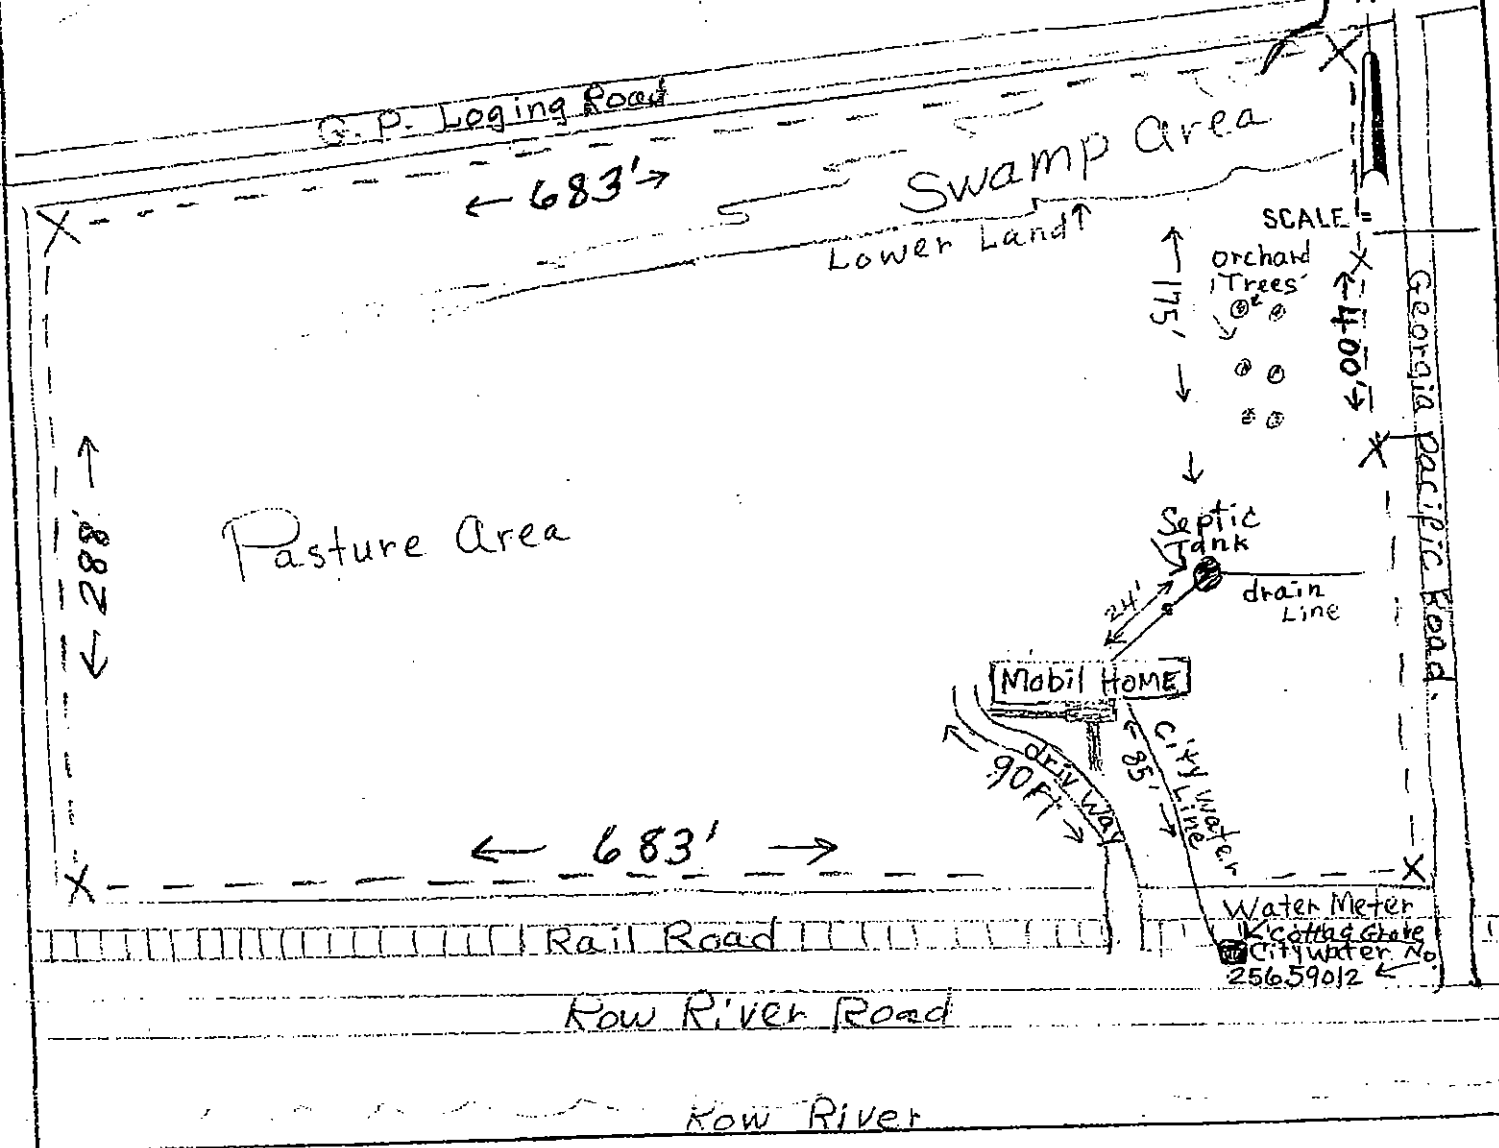 G. P. Loging Road
683'
Swamp Area
Lower Land
SCALE =
orchard
Trees
175'
400'
Georgia Pacific Road.
288'
Pasture Area
Septic
Tank
24'
drain
Line
Mobil HOME
driv Way
90 Ft
85'
City Water
Line
683'
Water Meter
Cottag Grove
City water No.
25659012
Rail Road
Row River Road
Row River